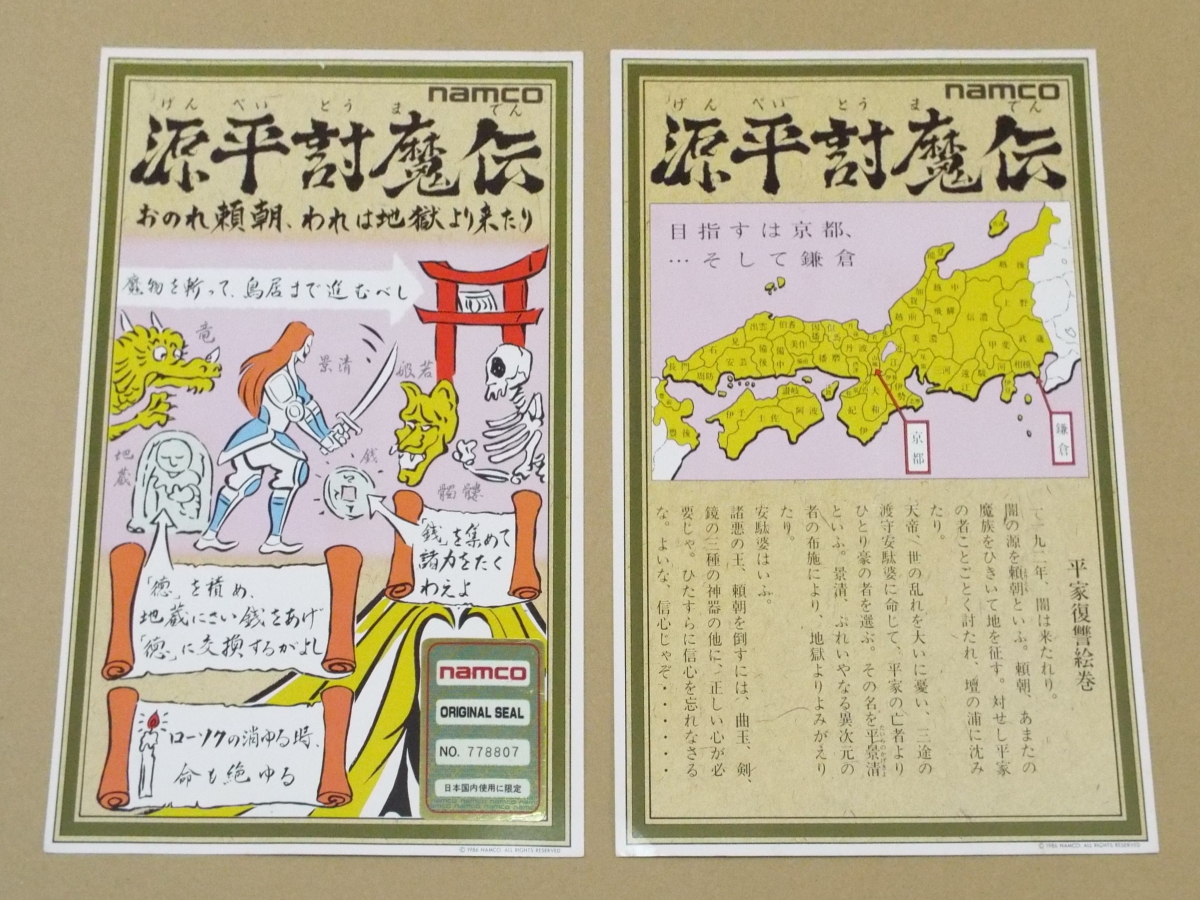 namco
げんぺいとうまでん
源平討魔伝
おのれ頼朝、われは地獄より来たり
魔物を斬って、鳥居まで進むべし
竜
景清
般若
地蔵
銭
髑髏
「銭」を集めて
諸力をたく
わえよ
「徳」を積め、
地蔵にさい銭をあげ
「徳」に交換するがよし
ローソクの消ゆる時、
命も絶ゆる
namco
ORIGINAL SEAL
NO. 778807
日本国内使用に限定
© 1986 NAMCO. ALL RIGHTS RESERVED
namco
げんぺいとうまでん
源平討魔伝
目指すは京都、
…そして鎌倉
能登
越後
越中
加賀
飛騨
信濃
上野
越前
美濃
甲斐
武蔵
相模
駿河
遠江
三河
出雲
伯耆
因幡
但馬
丹波
石見
安芸
備後
備中
美作
播磨
長門
周防
讃岐
阿波
伊予
土佐
紀伊
大和
伊勢
豊後
京都
鎌倉
平家復讐絵巻
一一九二年、闇は来たれり。
闇の源を頼朝といふ。頼朝、あまたの
魔族をひきいて地を征す。対せし平家
の者ことごとく討たれ、壇の浦に沈み
たり。
天帝、世の乱れを大いに憂い、三途の
渡守安駄婆に命じて、平家の亡者より
ひとり豪の者を選ぶ。その名を平景清
といふ。景清、ぶれいやなる異次元の
者の布施により、地獄よりよみがえり
たり。
安駄婆はいふ。
諸悪の王、頼朝を倒すには、曲玉、剣、
鏡の三種の神器の他に、正しい心が必
要じゃ。ひたすらに信心を忘れなさる
な。よいな、信心じゃぞ・・・・・・
© 1986 NAMCO. ALL RIGHTS RESERVED